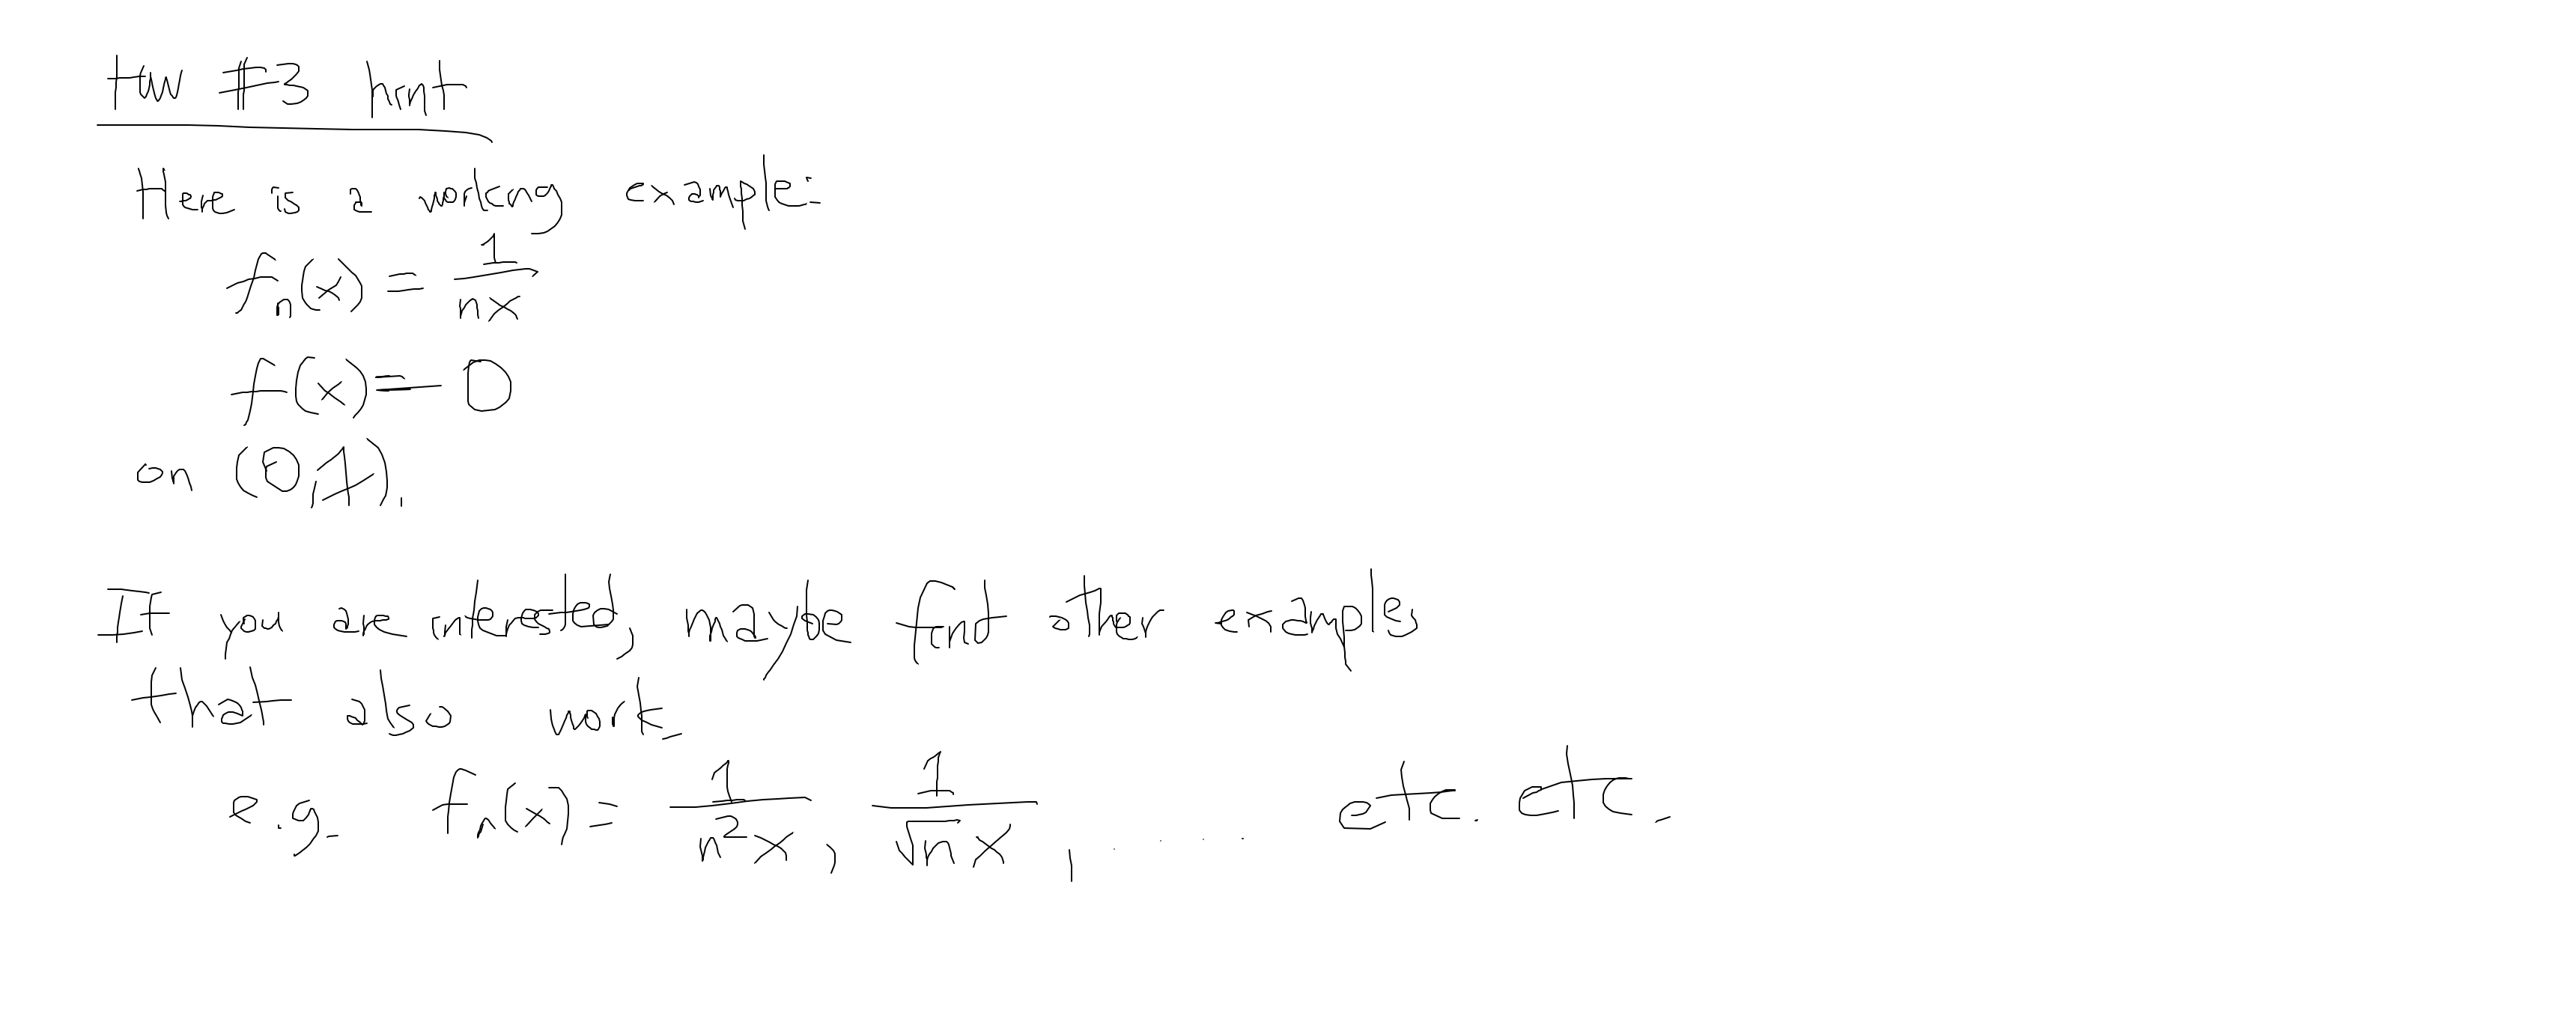 HW #3 hint
Here is a working example:
fₙ(x) = 1/(nx)
f(x) = 0
on (0,1).
If you are interested, maybe find other examples
that also work.
e.g. fₙ(x) = 1/(n²x), 1/(√n x), ..... etc. etc.